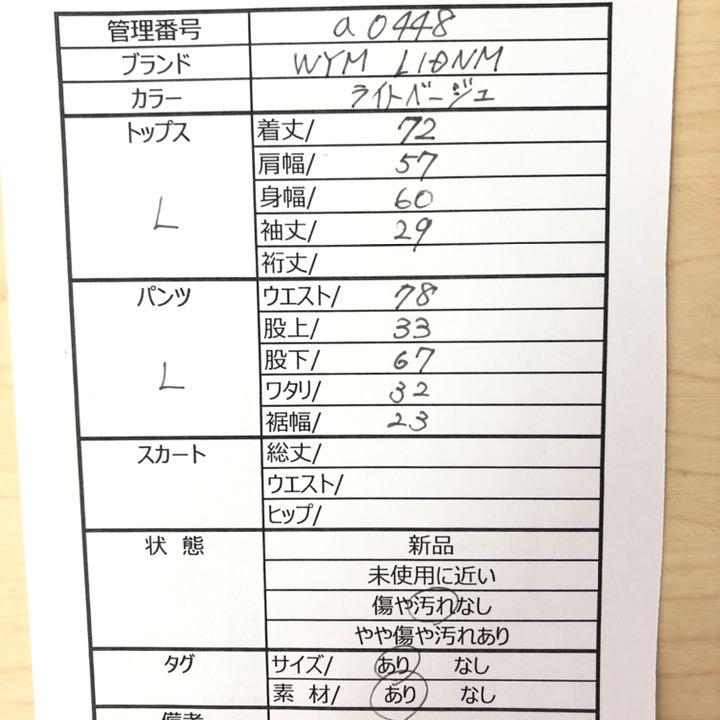 管理番号 a0448
ブランド WYM LIDNM
カラー ライトベージュ
トップス 着丈/ 72
肩幅/ 57
身幅/ 60
L 袖丈/ 29
裄丈/
パンツ ウエスト/ 78
股上/ 33
股下/ 67
L ワタリ/ 32
裾幅/ 23
スカート 総丈/
ウエスト/
ヒップ/
状 態 新品
未使用に近い
傷や汚れなし
やや傷や汚れあり
タグ サイズ/ あり なし
素 材/ あり なし
備考